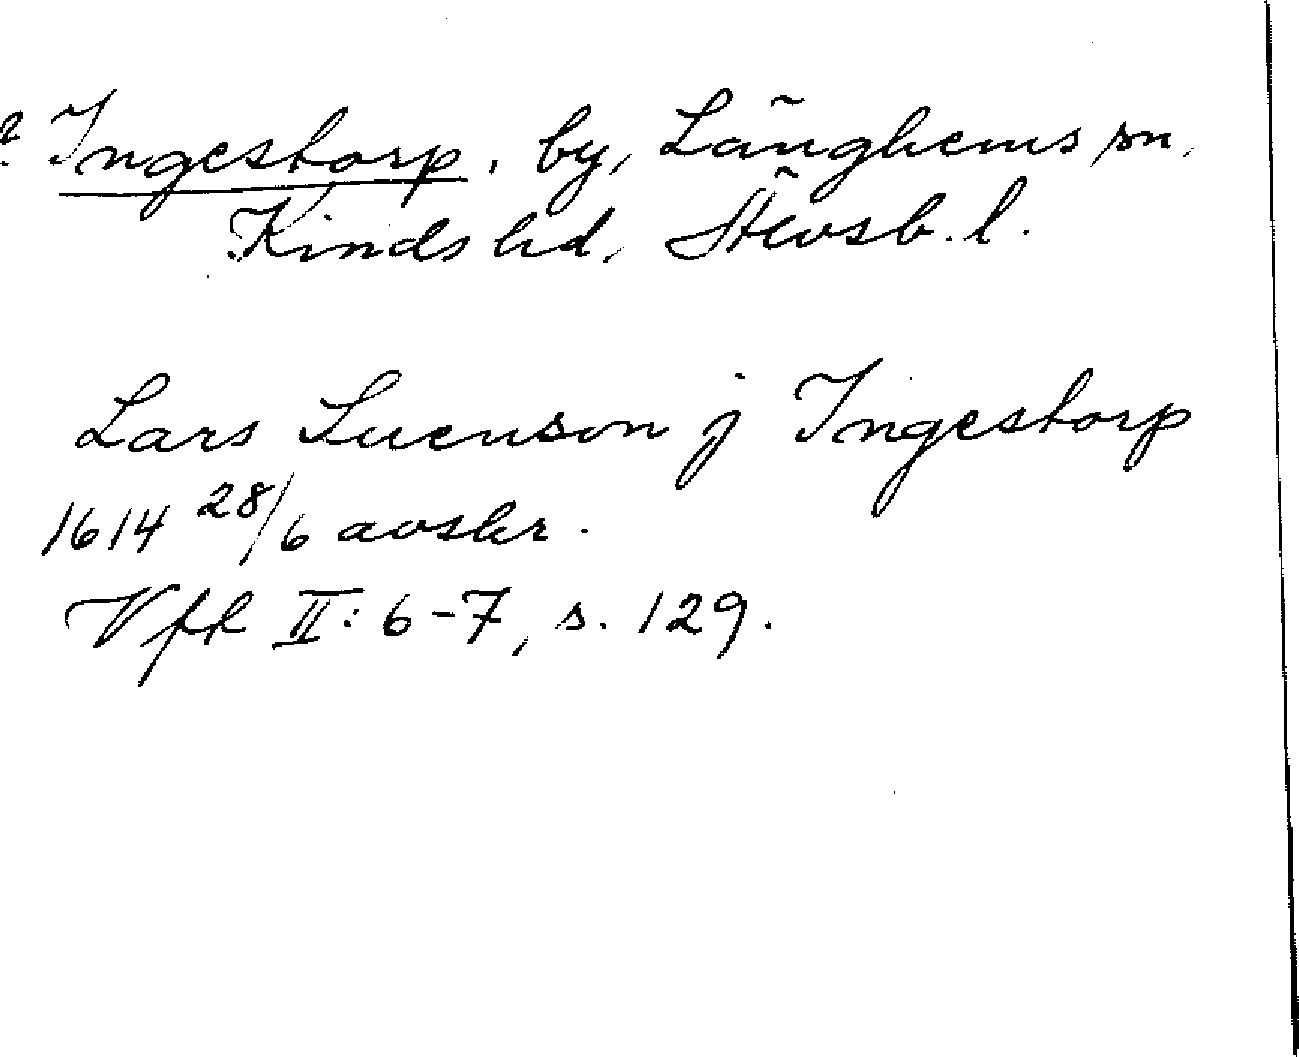 ? Ingestorp, by, Länghems sn,
Kinds hd, Älvsb. l.
Lars Suenson j Ingestorp
1614 28/6 avskr.
Vfk II: 6-7, s. 129.